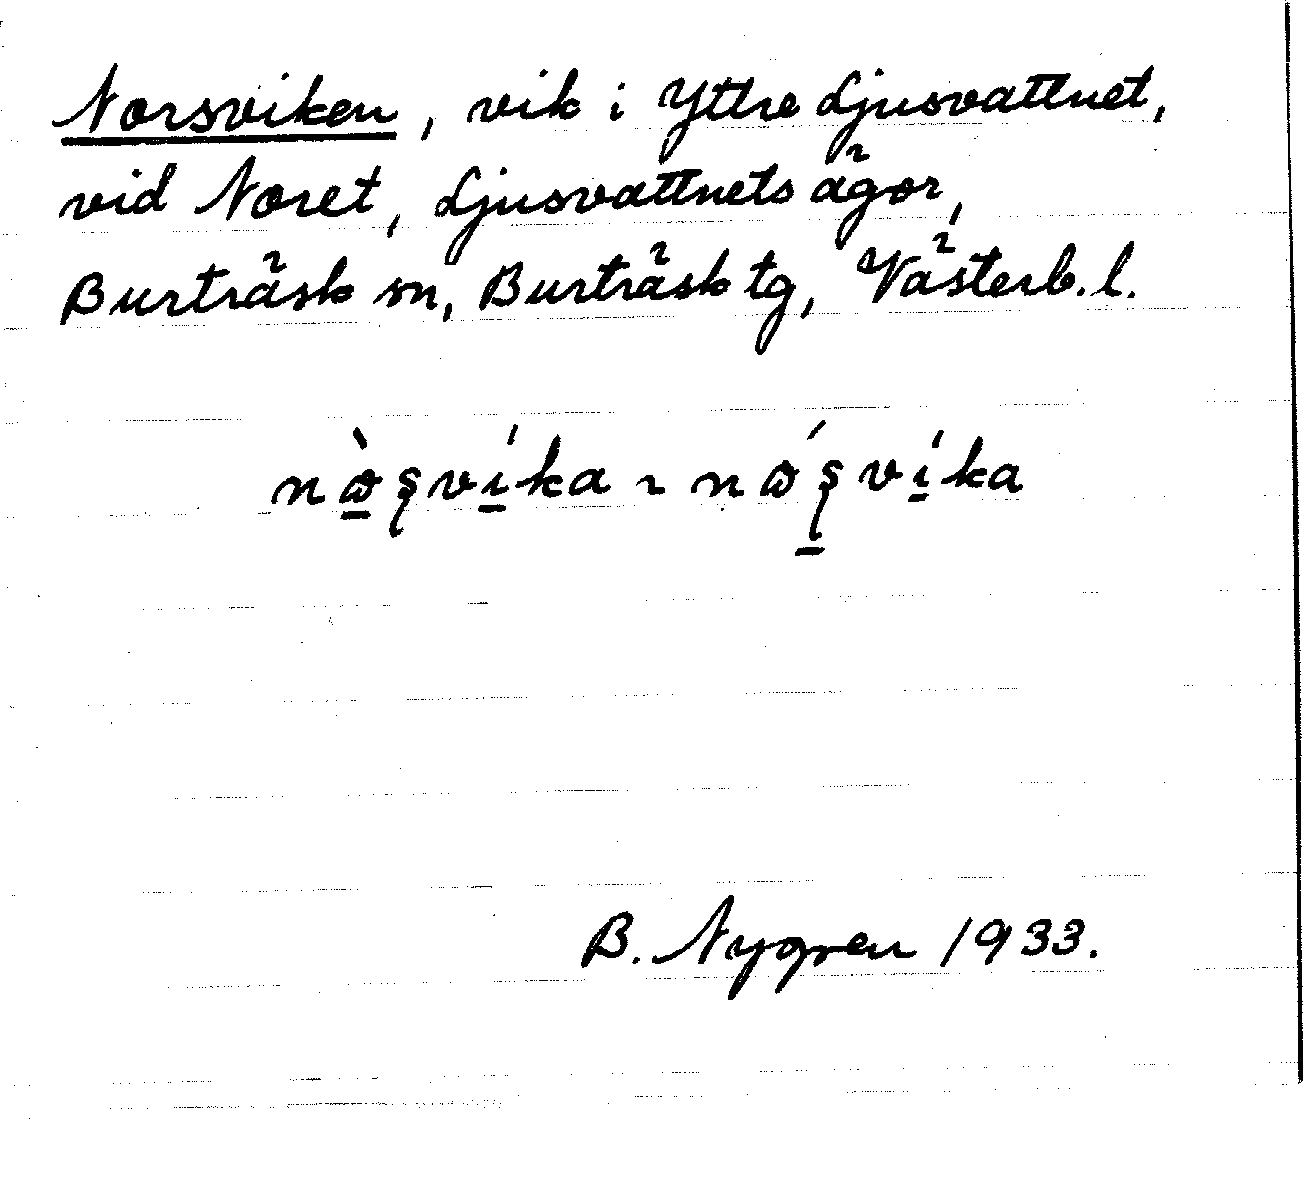 Norsviken, vik i Yttre Ljusvattnet,
vid Noret, Ljusvattnets ägor,
Burträsk sn, Burträsk tg, Västerb. l.
B. Nygren 1933.